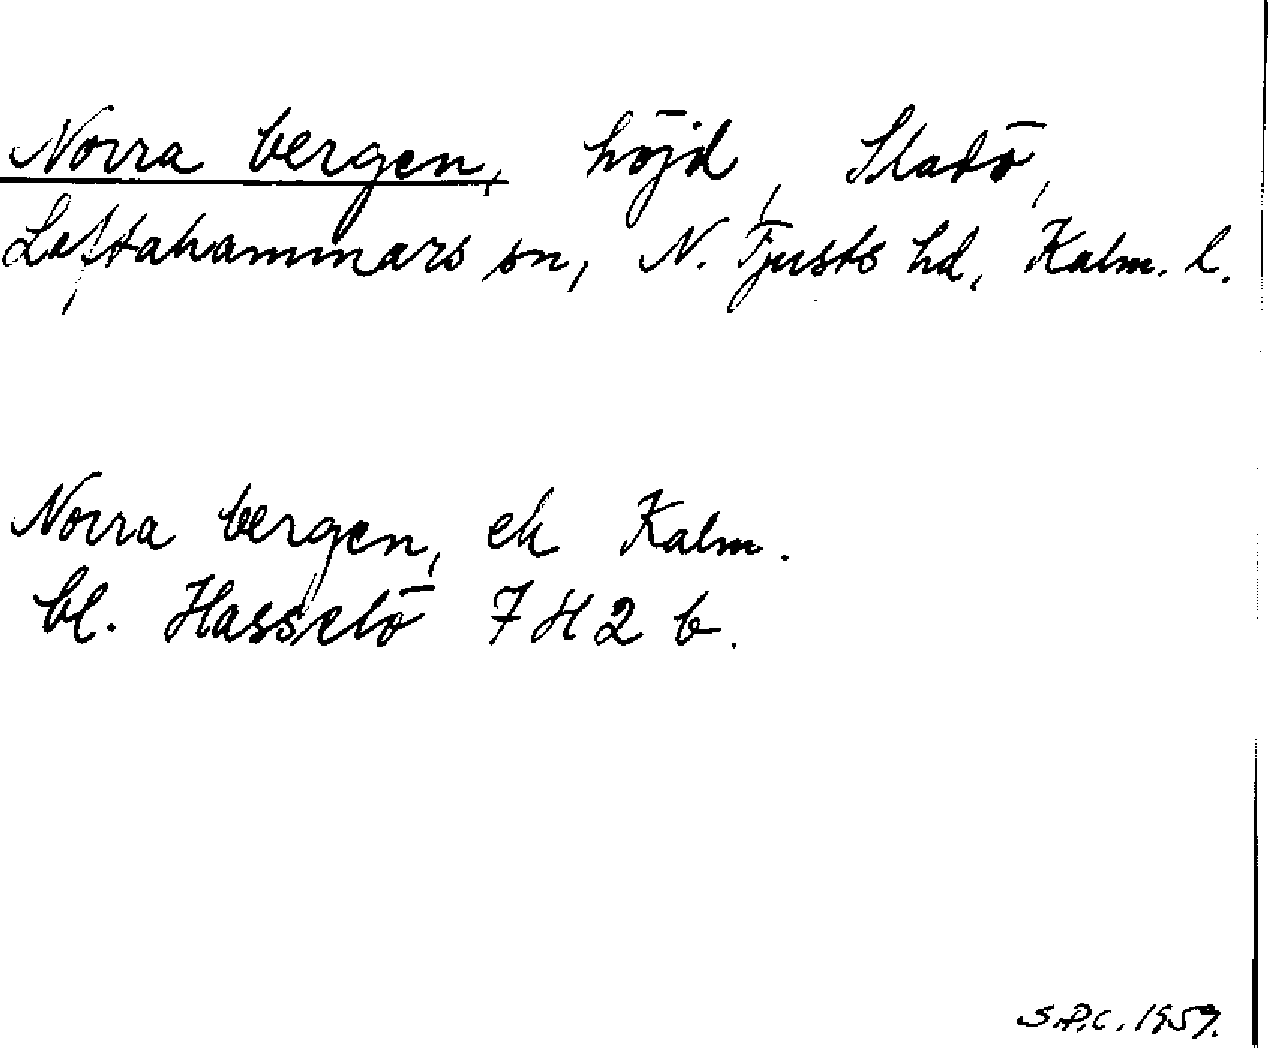 Norra bergen, höjd, Sladö,
Loftahammars sn, N. Tjusts hd, Kalm. l.
Norra bergen, ek Kalm.
bl. Hasselö 7H2 b.
S.P.C. 1959.